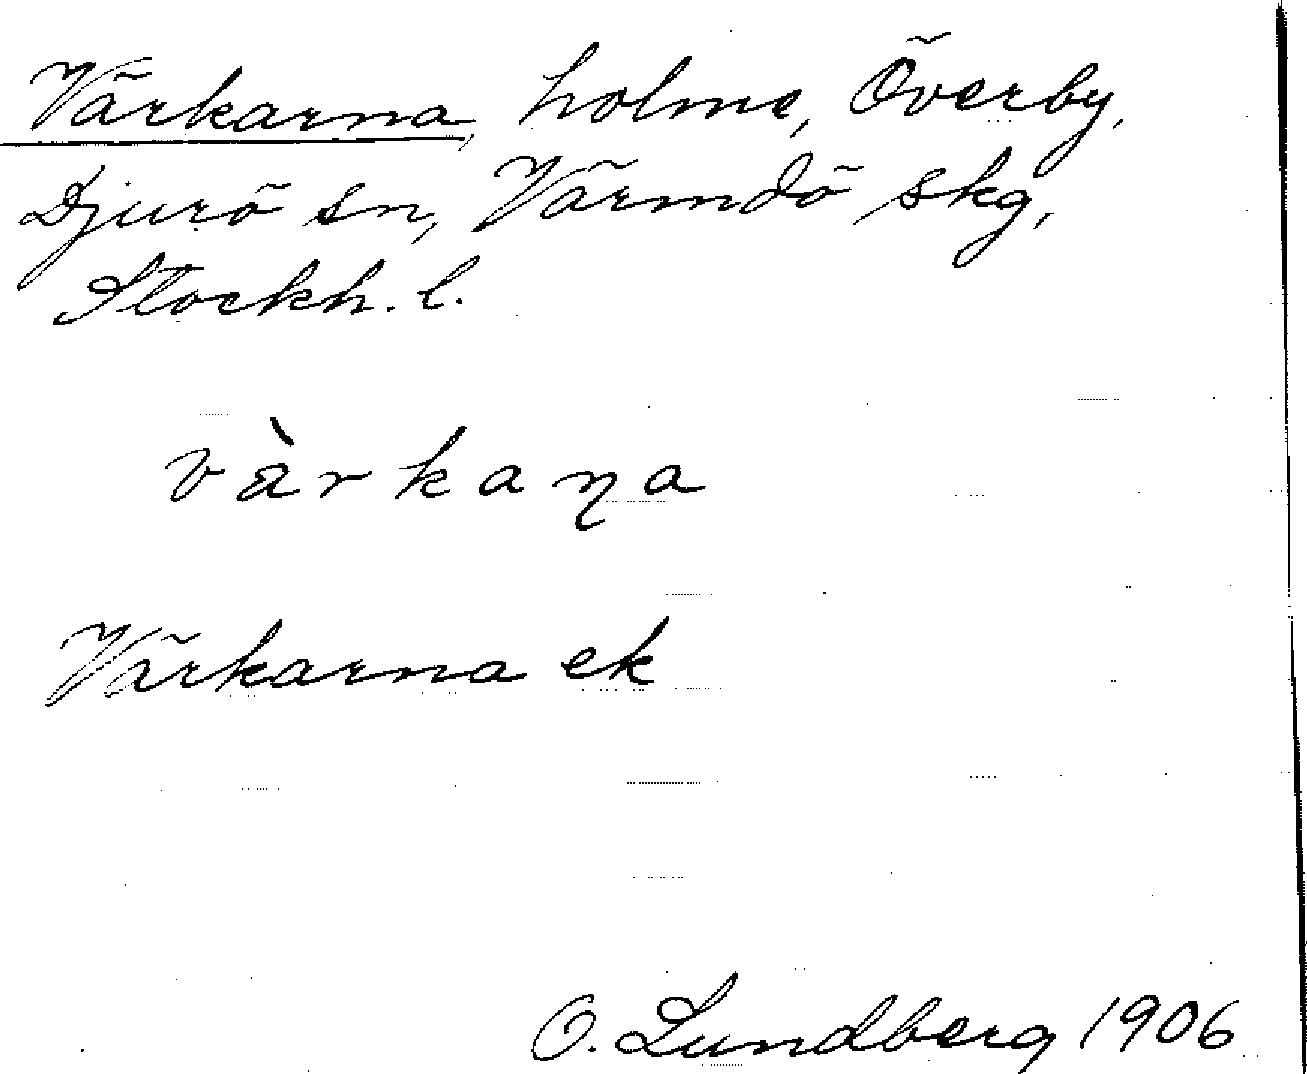 Värkarna, holme, Överby,
Djurö sn, Värmdö skg,
Stockh. l.
vàrkaɳa
Värkarna ek
O. Lundberg 1906